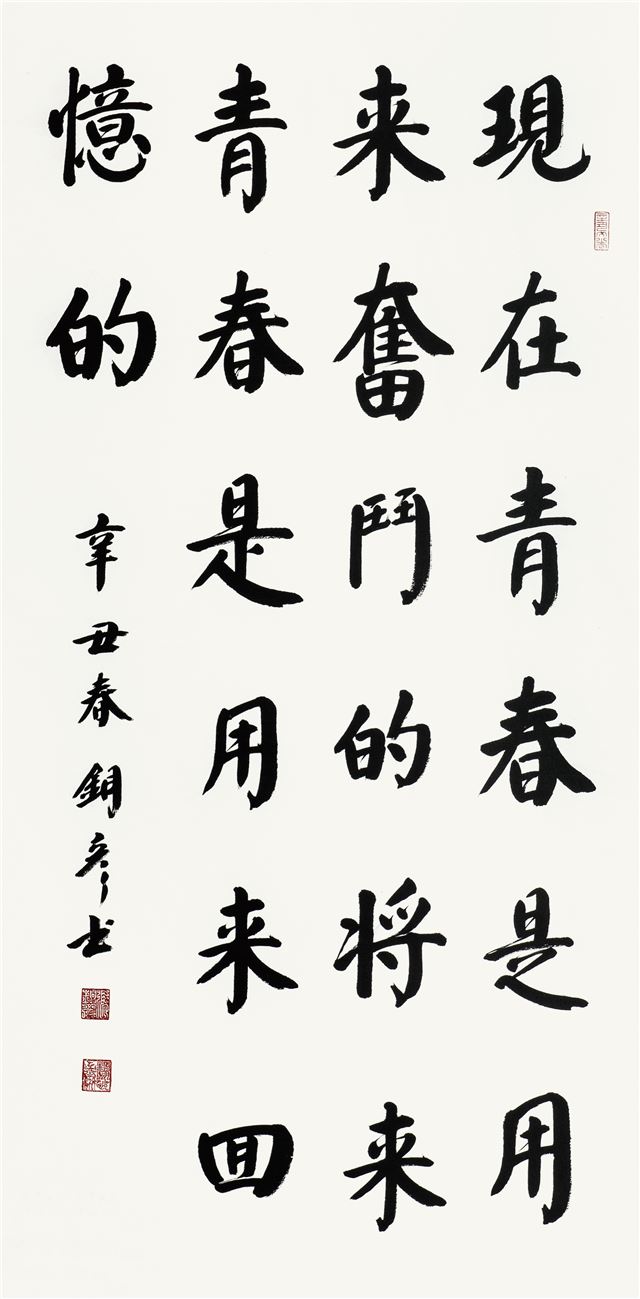 現在青春是用
来奮鬥的将来
青春是用来回
憶的
辛丑春銅彦书